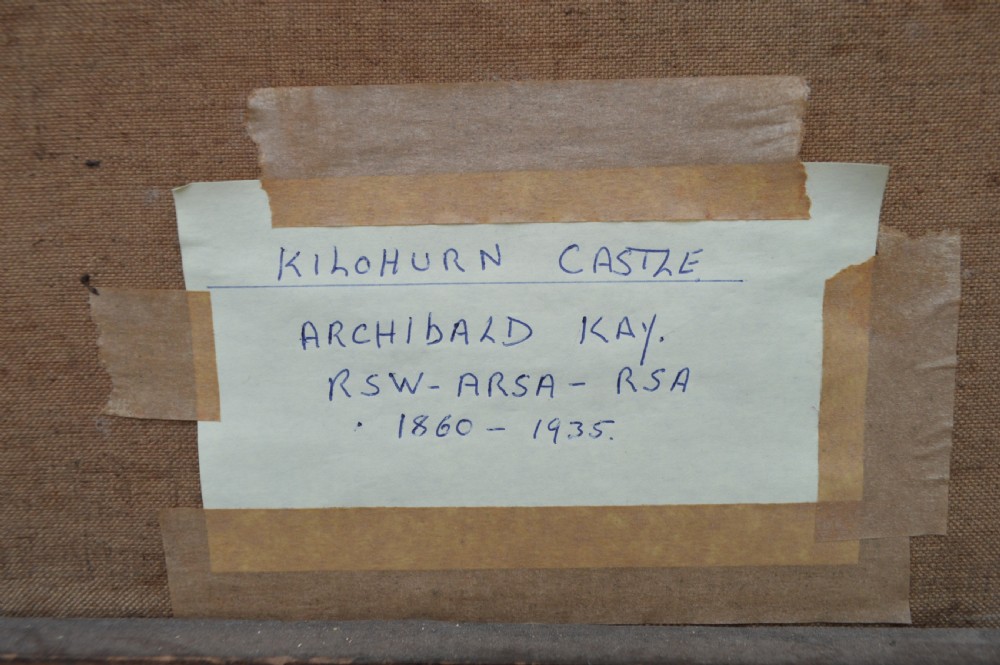 KILOHURN CASTLE
ARCHIBALD KAY.
RSW - ARSA - RSA
1860 - 1935.